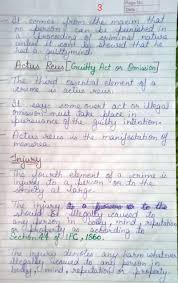 Page No.
Date
3
It comes from the maxim that
no person can be punished in
a proceeding of criminal nature
unless it could be showed that he
had a guilty mind.
Actus Reus [Guilty Act or Omission]
The third essential element of a
crime is actus reus.
It says some overt act or illegal
omission must take place in
pursuance of the guilty intention.
Actus reus is the manifestation of
mensrea.
Injury
The fourth element of a crime is
injury to a person or to the
society at large.
The injury to a person or to the
should be illegally caused to
any person in body, mind, reputation
or property as according to
Section 44 of IPC, 1860.
The injury denotes any harm whatever
illegally caused to any person in
body, mind, reputation or property.